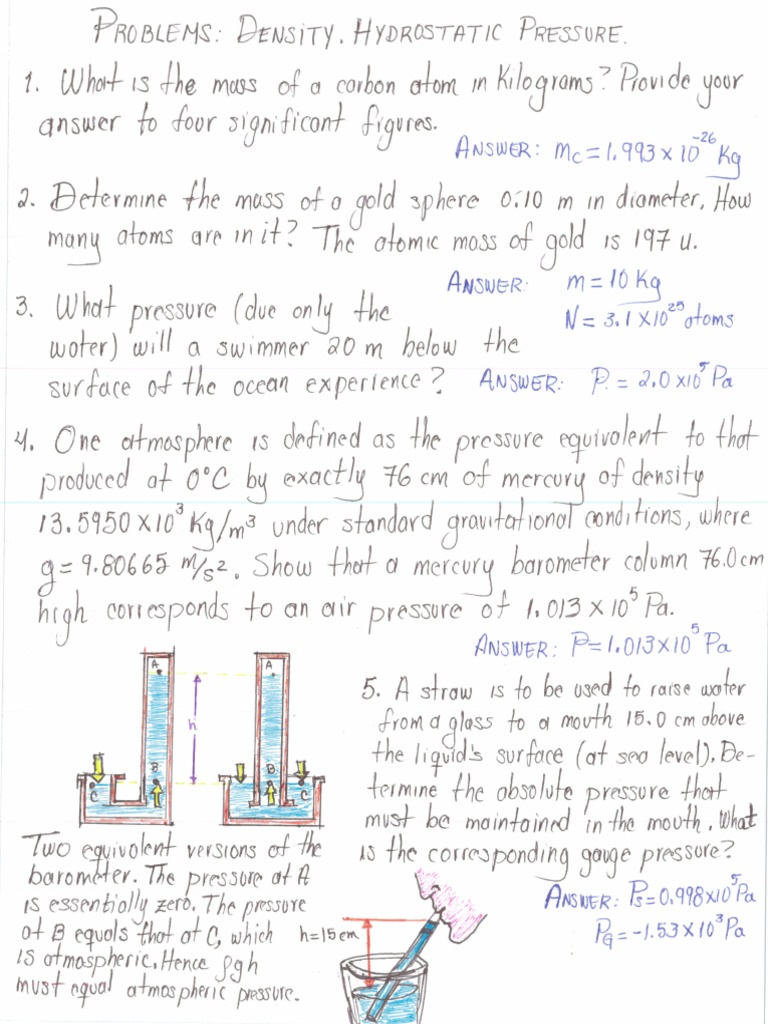 PROBLEMS: DENSITY. HYDROSTATIC PRESSURE.
1. What is the mass of a carbon atom in Kilograms? Provide your
answer to four significant figures.
ANSWER: mc = 1.993 x 10^-26 Kg
2. Determine the mass of a gold sphere 0.10 m in diameter. How
many atoms are in it? The atomic mass of gold is 197 u.
ANSWER: m = 10 Kg
N = 3.1 x 10^25 atoms
3. What pressure (due only the
water) will a swimmer 20 m below the
surface of the ocean experience? ANSWER: P. = 2.0 x 10^5 Pa
4. One atmosphere is defined as the pressure equivalent to that
produced at 0°C by exactly 76 cm of mercury of density
13.5950 x 10^3 Kg/m^3 under standard gravitational conditions, where
g = 9.80665 m/s^2. Show that a mercury barometer column 76.0 cm
high corresponds to an air pressure of 1.013 x 10^5 Pa.
ANSWER: P = 1.013 x 10^5 Pa
A
h
B
C
A
B
C
Two equivalent versions of the
barometer. The pressure at A
is essentially zero. The pressure
at B equals that at C, which
is atmospheric. Hence ρgh
must equal atmospheric pressure.
5. A straw is to be used to raise water
from a glass to a mouth 15.0 cm above
the liquid's surface (at sea level). De-
termine the absolute pressure that
must be maintained in the mouth. What
is the corresponding gauge pressure?
ANSWER: Ps = 0.998 x 10^5 Pa
PG = -1.53 x 10^3 Pa
h = 15 cm